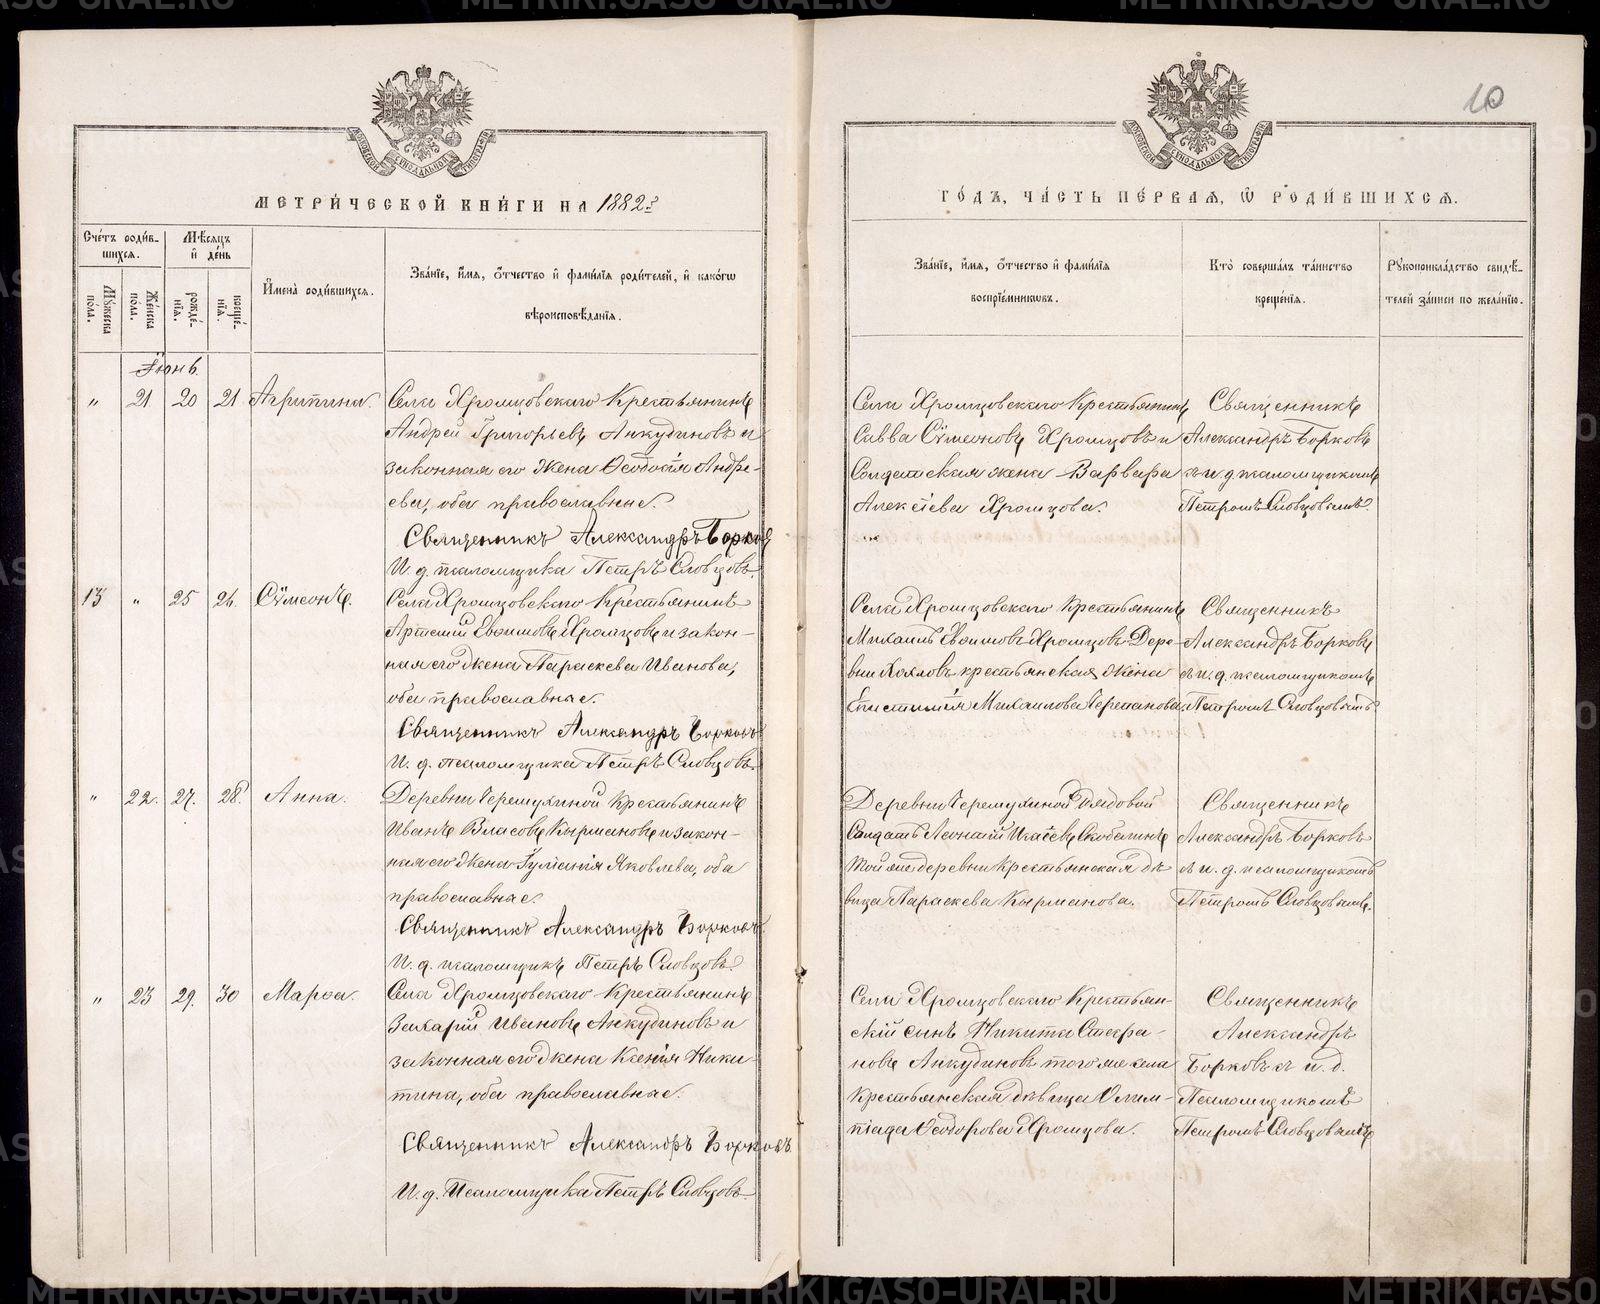 METRIKI.GASO-URAL.RU
10
МЕТРИ́ЧЕСКОЙ КНИ́ГИ НА 1882й
ГО́ДЪ, ЧА́СТЬ ПЕ́РВАЯ, Ѿ РОДИ́ВШИХСЯ.
Сче́тъ роди́вшихся.
Мѣ́сяцъ и҆ де́нь
Мꙋ́жеска по́ла.
Же́нска по́ла.
рожде́нїѧ.
креще́нїѧ.
И҆мена̀ роди́вшихся.
Зва́нїе, и҆́мѧ, ѻ҆́тчество и҆ фами́лїѧ роди́телей, и҆ како́гѡ
вѣроисповѣ́данїѧ.
Зва́нїе, и҆́мѧ, ѻ҆́тчество и҆ фами́лїѧ
воспрїе́мникѡвъ.
Кто̀ соверша́лъ та́инство
креще́нїѧ.
Рꙋкоприкла́дство свидѣ́-
телей за́писи по жела́нїю.
Іюнь.
" 21 20 21 Агрипина.
Села Хромцовскаго Крестьянинъ
Андрей Григорьевъ Анкудиновъ и
законная его жена Ѳеодосія Андре-
ева, оба православные.
Священникъ Александръ Борковъ
И. д. псаломщика Петръ Словцовъ.
Села Хромцовскаго Крестьянинъ
Савва Сѵмеоновъ Хромцовъ и
Солдатская жена Варвара
Алексіева Хромцова.
Священникъ
Александръ Борковъ
съ и. д. псаломщикомъ
Петромъ Словцовымъ
13 " 25 26. Сѵмеонъ.
Села Хромцовскаго Крестьянинъ
Артемій Евѳимовъ Хромцовъ и закон-
ная его жена Параскева Иванова,
оба православные.
Священникъ Александръ Борковъ
И. д. псаломщика Петръ Словцовъ.
Села Хромцовскаго Крестьянинъ
Михаилъ Евѳимовъ Хромцовъ Дере-
вни крестьянская жена
Епистимія Михаилова Черепанова.
Священникъ
Александръ Борковъ
съ и. д. псаломщикомъ
Петромъ Словцовымъ.
" 22. 27. 28. Анна.
Деревни Черемухиной Крестьянинъ
Иванъ Власовъ Кырмановъ и закон-
ная его жена Іуліанія Яковлева, оба
православные.
Священникъ Александръ Борковъ.
И. д. псаломщикъ Петръ Словцовъ.
Деревни Черемухиной Рядовой
Солдатъ Леонтій Скобелинъ
той же деревни Крестьянская дѣ
вица Параскева Кырманова.
Священникъ
Александръ Борковъ
съ и. д. псаломщикомъ
Петромъ Словцовымъ.
" 23 29. 30 Марѳа.
Села Хромцовскаго Крестьянинъ
Захарій Ивановъ Анкудиновъ и
законная его жена Ксенія Ники-
тина, оба православные.
Священникъ Александръ Борковъ.
И. д. Псаломщика Петръ Словцовъ.
Села Хромцовскаго Крестьян-
скій сынъ Никита Стефа-
новъ Анкудиновъ того же села
Крестьянская дѣвица Олим-
піада Ѳеодорова Хромцова.
Священникъ
Александръ
Борковъ съ и. д.
Псаломщикомъ
Петромъ Словцовымъ